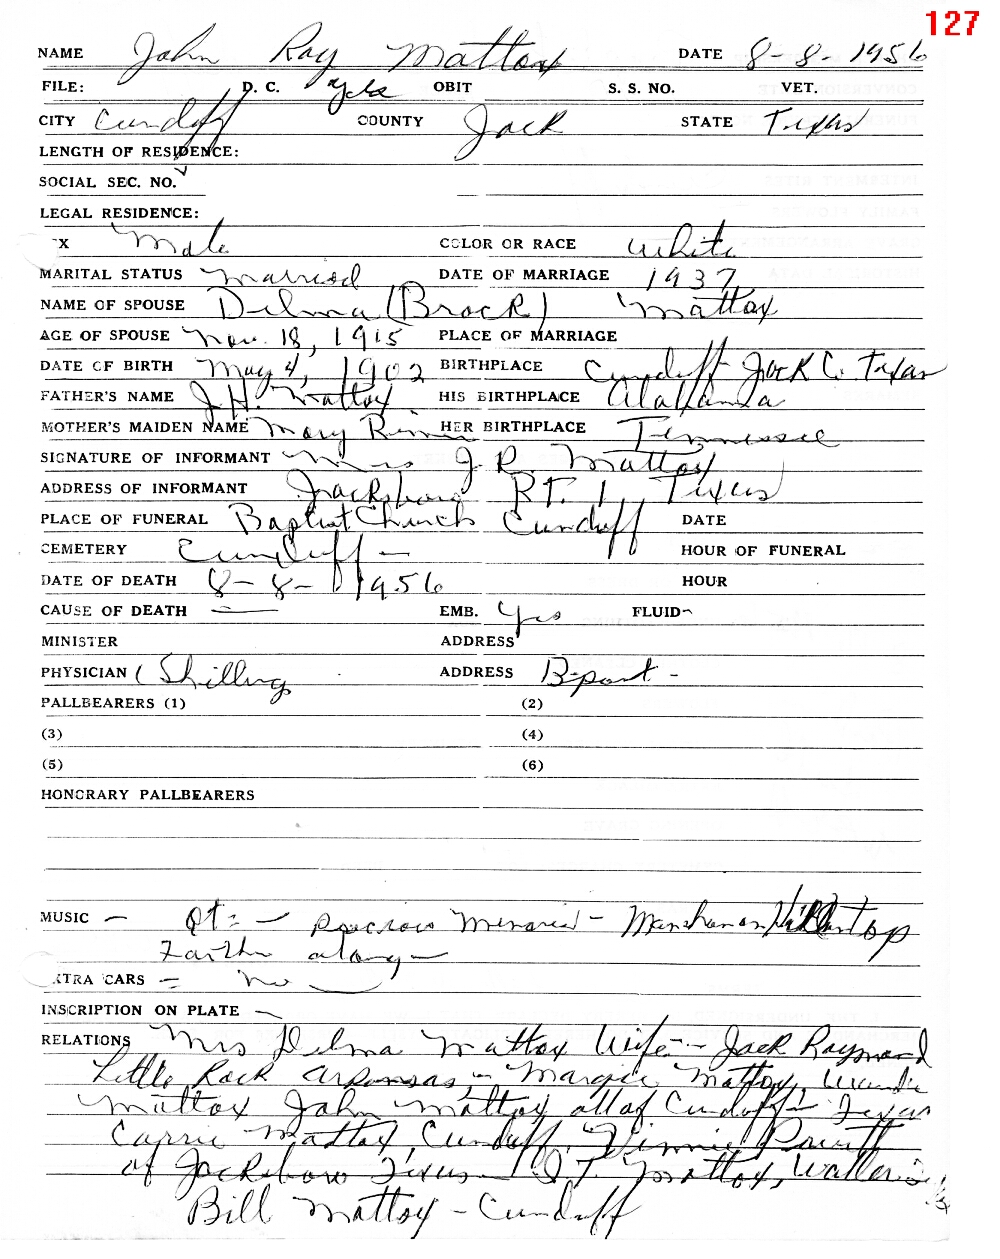 127
NAME John Ray Mattox DATE 8-8-1956
FILE: D. C. yes OBIT S. S. NO. VET.
CITY Cundiff COUNTY Jack STATE Texas
LENGTH OF RESIDENCE:
SOCIAL SEC. NO.
LEGAL RESIDENCE:
X Male COLOR OR RACE White
MARITAL STATUS Married DATE OF MARRIAGE 1937
NAME OF SPOUSE Delma (Brock) Mattox
AGE OF SPOUSE Nov. 18, 1915 PLACE OF MARRIAGE
DATE OF BIRTH May 4, 1902 BIRTHPLACE Cundiff Jack C. Texas
FATHER'S NAME J.H. Mattox HIS BIRTHPLACE Alabama
MOTHER'S MAIDEN NAME Mary HER BIRTHPLACE Tennessee
SIGNATURE OF INFORMANT Mrs J. R. Mattox
ADDRESS OF INFORMANT Jacksboro RT. 1, Texas
PLACE OF FUNERAL Baptist Church Cundiff DATE
CEMETERY Cundiff - HOUR OF FUNERAL
DATE OF DEATH 8-8-1956 HOUR
CAUSE OF DEATH — EMB. Yes FLUID
MINISTER ADDRESS
PHYSICIAN (Shilling ADDRESS B-port -
PALLBEARERS (1) (2)
(3) (4)
(5) (6)
HONORARY PALLBEARERS
MUSIC - Qt: - Precious Memories - Manshan on Hill top
Farther along -
XTRA CARS - No
INSCRIPTION ON PLATE -
RELATIONS Mrs Delma Mattox Wife - Jack Raymond
Little Rock Arkansas, - Margie Mattox, Wanda
Mattox John Mattox all of Cundiff - Texas
Carrie Mattox, Cundiff,
of Jacksboro Texas - Mattox,
Bill Mattox - Cundiff